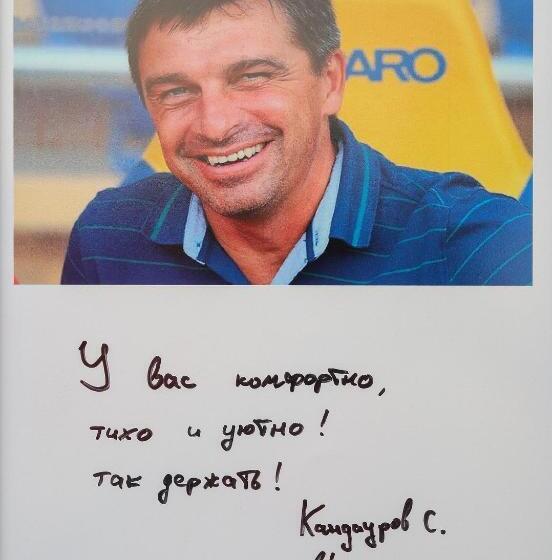 ARO
У вас комфортно,
тихо и уютно!
так держать!
Кандауров С.